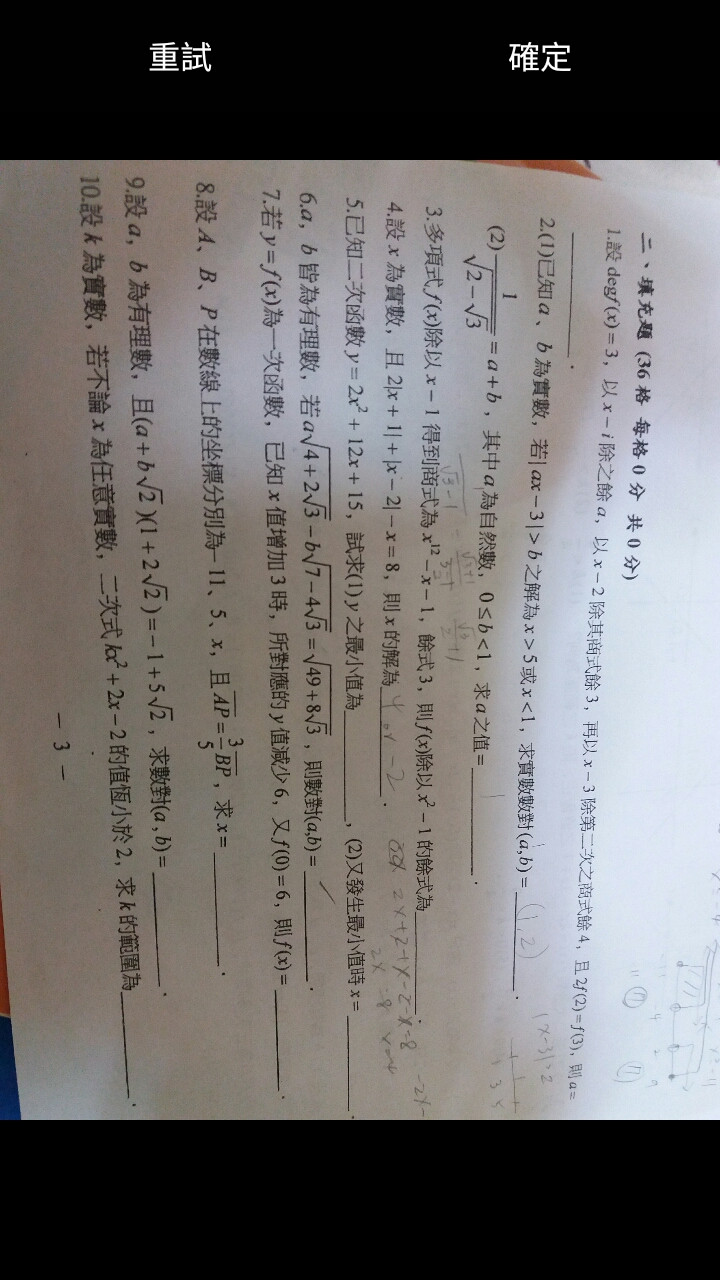 重試
確定
二、填充題 (36 格 每格 0 分 共 0 分)
1.設 degf(x)=3，以 x−i 除之餘 a，以 x−2 除其商式餘 3，再以 x−3 除第二次之商式餘 4，且 2f(2)=f(3)，則 a=
________．
2.(1)已知 a、b 為實數，若|ax−3|>b 之解為 x>5 或 x<1，求實數數對(a,b)=(1,2)．
|x-3|>2
(2) 1/√(2−√3) = a+b，其中 a 為自然數，0≤b<1，求 a 之值=________．
3.多項式 f(x)除以 x−1 得到商式為 x¹²−x−1，餘式 3，則 f(x)除以 x²−1 的餘式為________．
4.設 x 為實數，且 2|x+1|+|x−2|−x=8，則 x 的解為 4 or −2．
2x+2+x-2-x=8
2x=8
5.已知二次函數 y=2x²+12x+15，試求(1)y 之最小值為________，(2)又發生最小值時 x=________．
6.a，b 皆為有理數，若 a√(4+2√3)−b√(7−4√3)=√(49+8√3)，則數對(a,b)=________．
7.若 y=f(x)為一次函數，已知 x 值增加 3 時，所對應的 y 值減少 6，又 f(0)=6，則 f(x)=________．
8.設 A、B、P 在數線上的坐標分別為−11、5、x，且 AP=3/5 BP，求 x=________．
9.設 a，b 為有理數，且(a+b√2)(1+2√2)=−1+5√2，求數對(a,b)=________．
10.設 k 為實數，若不論 x 為任意實數，二次式 kx²+2x−2 的值恆小於 2，求 k 的範圍為________．
− 3 −